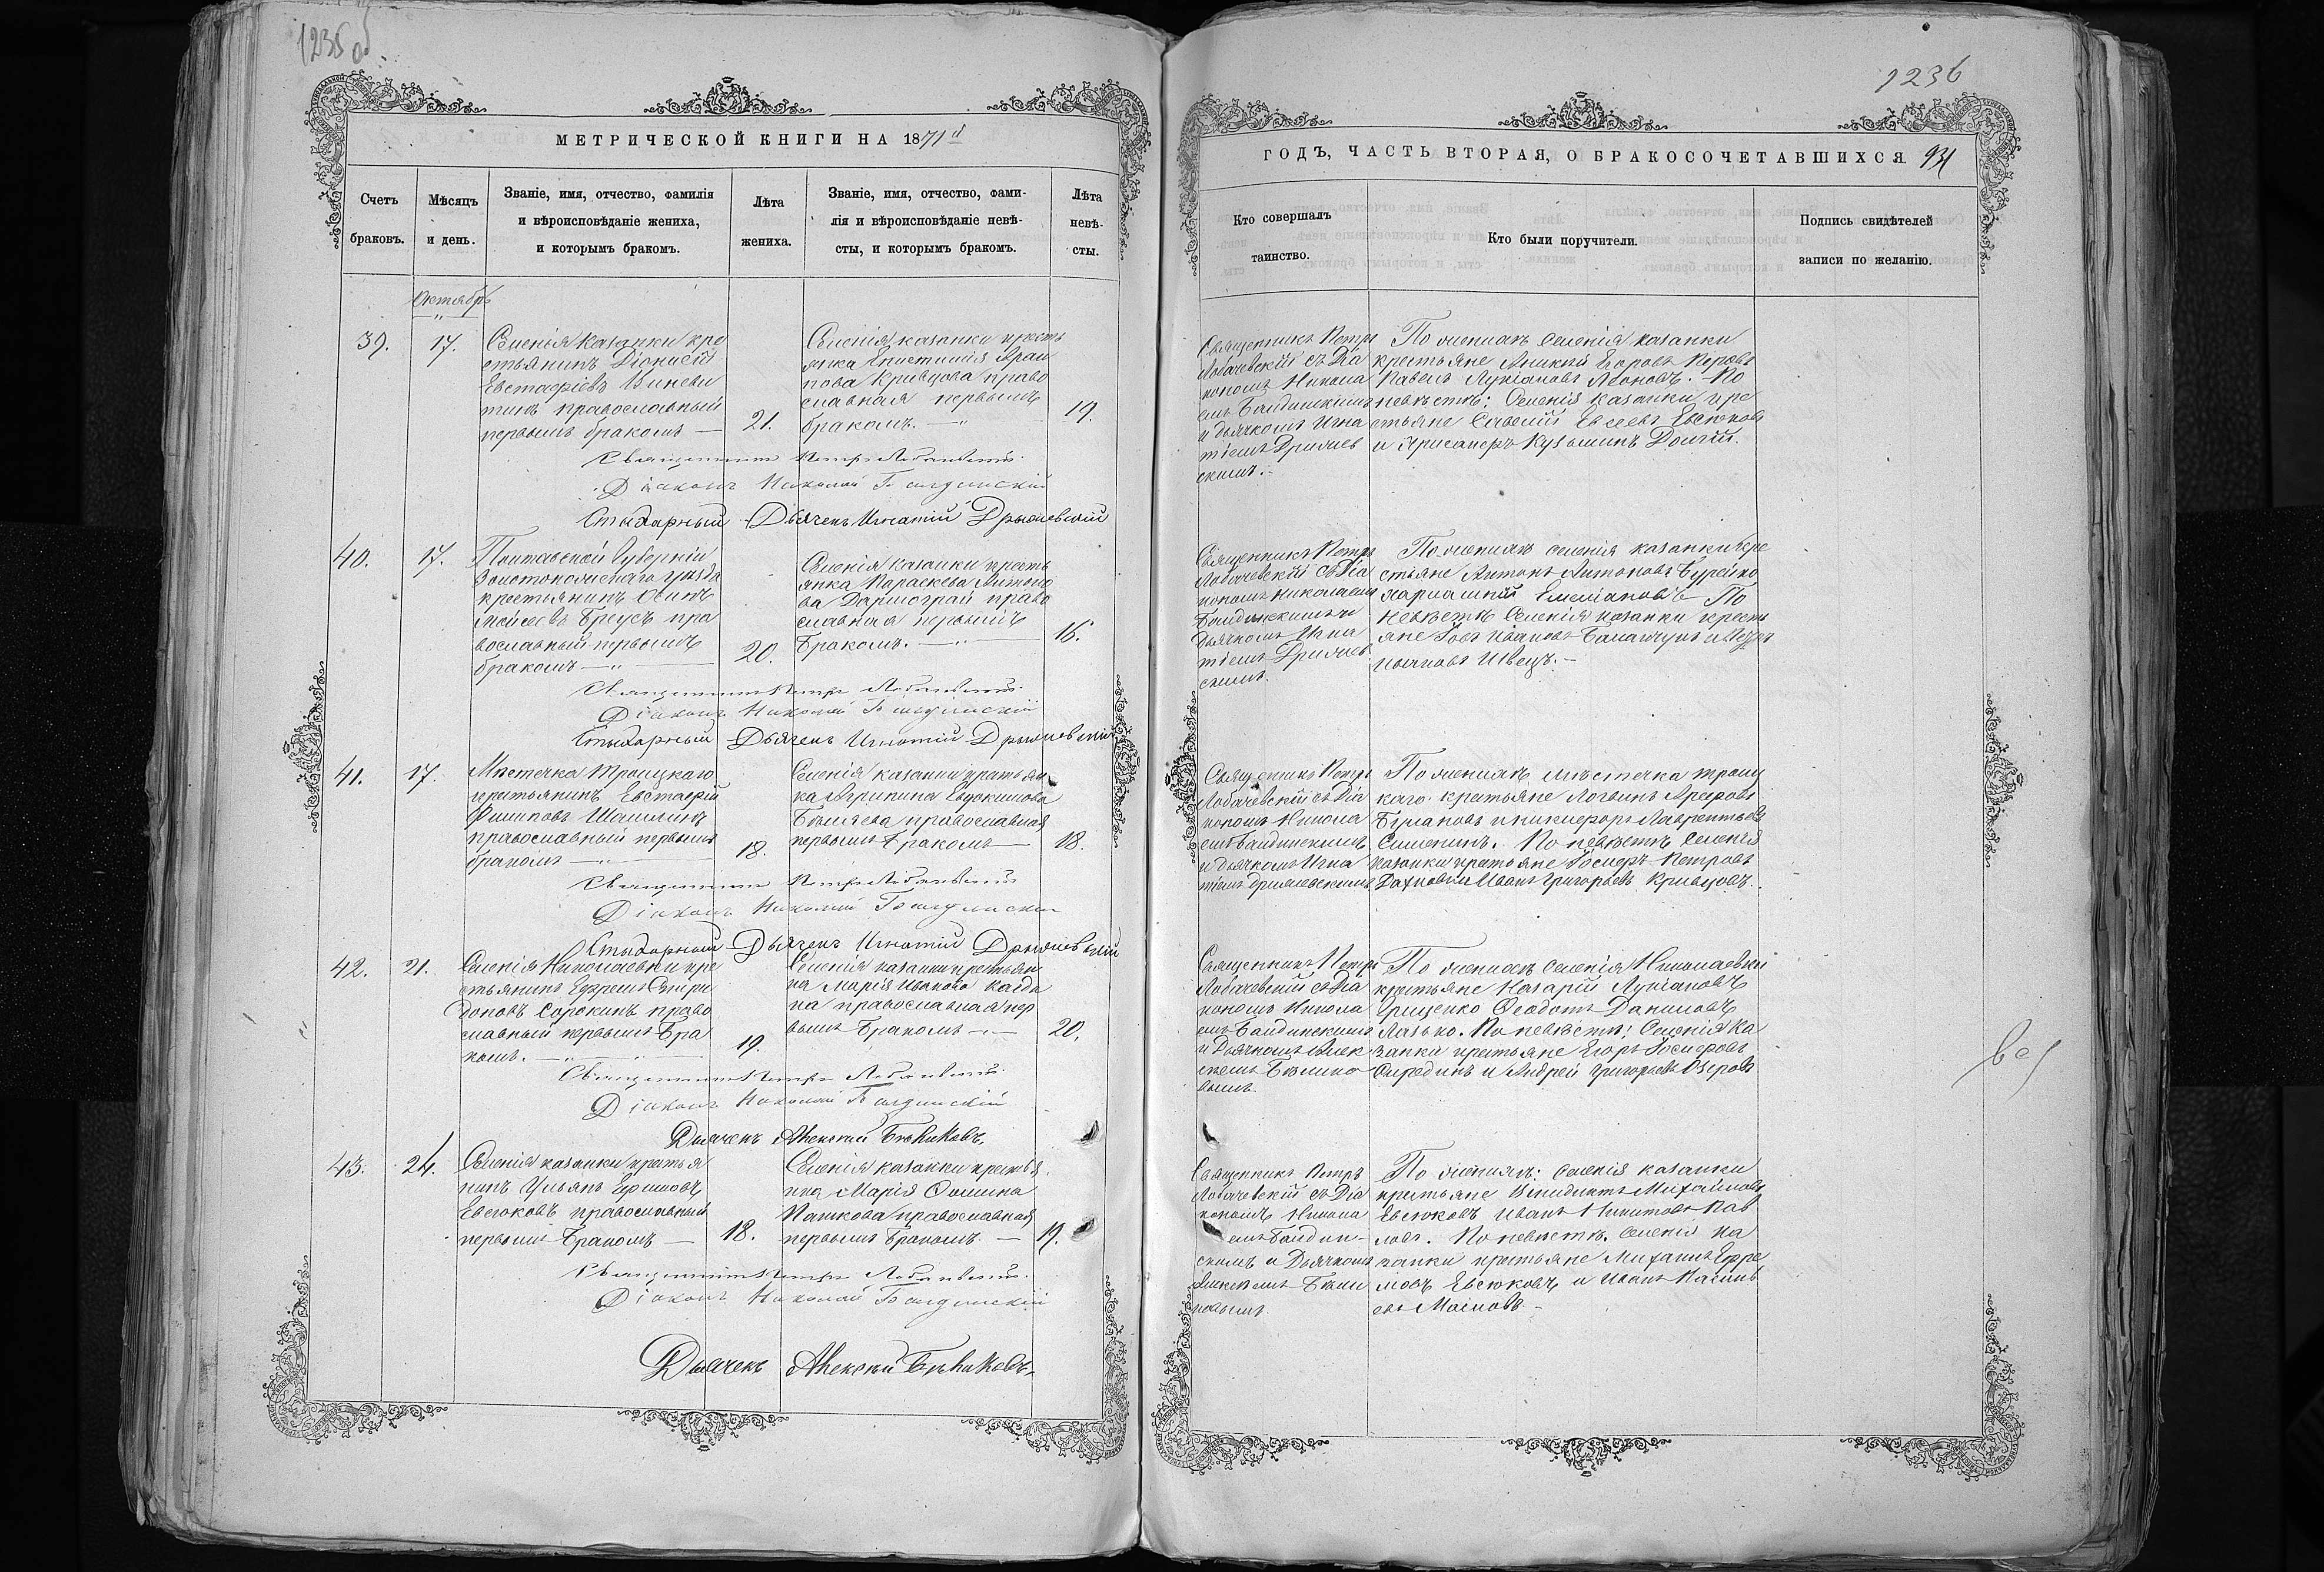 1235 об.
МЕТРИЧЕСКОЙ КНИГИ НА 1871й
Счетъ браковъ.
Мѣсяцъ и день.
Званіе, имя, отчество, фамилія
и вѣроисповѣданіе жениха,
и которымъ бракомъ.
Лѣта жениха.
Званіе, имя, отчество, фами-
лія и вѣроисповѣданіе невѣ-
сты, и которымъ бракомъ.
Лѣта невѣ-
сты.
Октябрь
39.
17.
Селенія Казанки кре
стьянинъ Діонисій
Евстафіевъ
православный
первымъ бракомъ —
21.
Селенія казанки кресть
янка Епистимія
Кривцова право
славная первымъ
бракомъ. —
19.
Священникъ Петръ Лобачевскій
Діаконъ Николай Балдинскій
Стихарный Дьячекъ Игнатій
40.
17.
Полтавской Губерніи
Золотоношскаго уѣзда
крестьянинъ
Моисеевъ Бреусъ пра
вославный первымъ
бракомъ —
20.
Селенія казанки кресть
янка Параскева Антоно
ва право
славная первымъ
бракомъ. —
16.
Священникъ Петръ Лобачевскій
Діаконъ Николай Балдинскій
Стихарный Дьячекъ Игнатій
41.
17.
Мѣстечка Троицкаго
крестьянинъ Евстафій
Филиповъ
православный первымъ
бракомъ —
18.
Селенія казанки крестьян
ка Агрипина Евдокимова
Бѣляева православная
первымъ бракомъ —
18.
Священникъ Петръ Лобачевскій
Діаконъ Николай Балдинскій
Стихарный Дьячекъ Игнатій
42.
21.
Селенія Николаевки кре
стьянинъ Ефремъ Спири
доновъ Сорокинъ право
славный первымъ бра
комъ. —
19.
Селенія казанки крестьян
ка Марія Иванова
православная пер
вымъ бракомъ —
20.
Священникъ Петръ Лобачевскій
Діаконъ Николай Балдинскій
Дьячекъ Алексѣй
43.
24.
Селенія казанки крестья
нинъ Ульянъ Ефимовъ
Евсюковъ православный
первымъ бракомъ —
18.
Селенія казанки крестья
нка Марія Фомина
Пашкова православная
первымъ бракомъ. —
19.
Священникъ Петръ Лобачевскій
Діаконъ Николай Балдинскій
Дьячекъ Алексѣй
1236
ГОДЪ, ЧАСТЬ ВТОРАЯ, О БРАКОСОЧЕТАВШИХСЯ.
931
Кто совершалъ
таинство.
Кто были поручители.
Подпись свидѣтелей
записи по желанію.
Священникъ Петръ
Лобачевскій съ Діа
кономъ Никола
емъ Балдинскимъ
и дьячкомъ Игна
тіемъ
скимъ.
По женихѣ Селенія казанки
крестьяне Егоровъ
Павелъ Лукіановъ Леоновъ. По
невѣстѣ: Селенія казанки кре
стьяне Савелій Евсеевъ Евсюковъ
и Кузьминъ
Священникъ Петръ
Лобачевскій съ Діа
кономъ Николаемъ
Балдинскимъ и
Дьячкомъ Игна
тіемъ
скимъ.
По женихѣ селенія казанки кре
стьяне Антонъ Антоновъ
Емеліановъ По
невѣстѣ Селенія казанки кресть
яне Іовъ Ивановъ
Швецъ. —
Священникъ Петръ
Лобачевскій съ Діа
кономъ Никола
емъ Балдинскимъ
и дьячкомъ Игна
тіемъ
По женихѣ мѣстечка троиц
каго крестьяне Логвинъ
и Никифоръ Лаврентьевъ
По невѣстѣ Селенія
казанки крестьяне Іосифъ Петровъ
Иванъ Григорьевъ Кривцовъ.
Священникъ Петръ
Лобачевскій съ Діа
кономъ Никола
емъ Балдинскимъ
и Дьячкомъ Алек
сѣемъ
вымъ.
По женихѣ Селенія Николаевки
крестьяне Назарій Лукіановъ
Грищенко Феодотъ Даниловъ
По невѣстѣ: Селенія Ка
занки крестьяне Егоръ Іосифовъ
Середин и Андрей Григорьевъ Озеровъ
Священникъ Петръ
Лобачевскій съ Діа
кономъ Никола
емъ Балдин-
скимъ и Дьячкомъ
Алексѣемъ
По женихѣ: Селенія казанки
крестьяне Михайловъ
Евсюковъ Иванъ Никитовъ Пав
ловъ. По невѣстѣ. Селенія ка
занки крестьяне Михаилъ Ефре
мовъ Евсюковъ и Иванъ